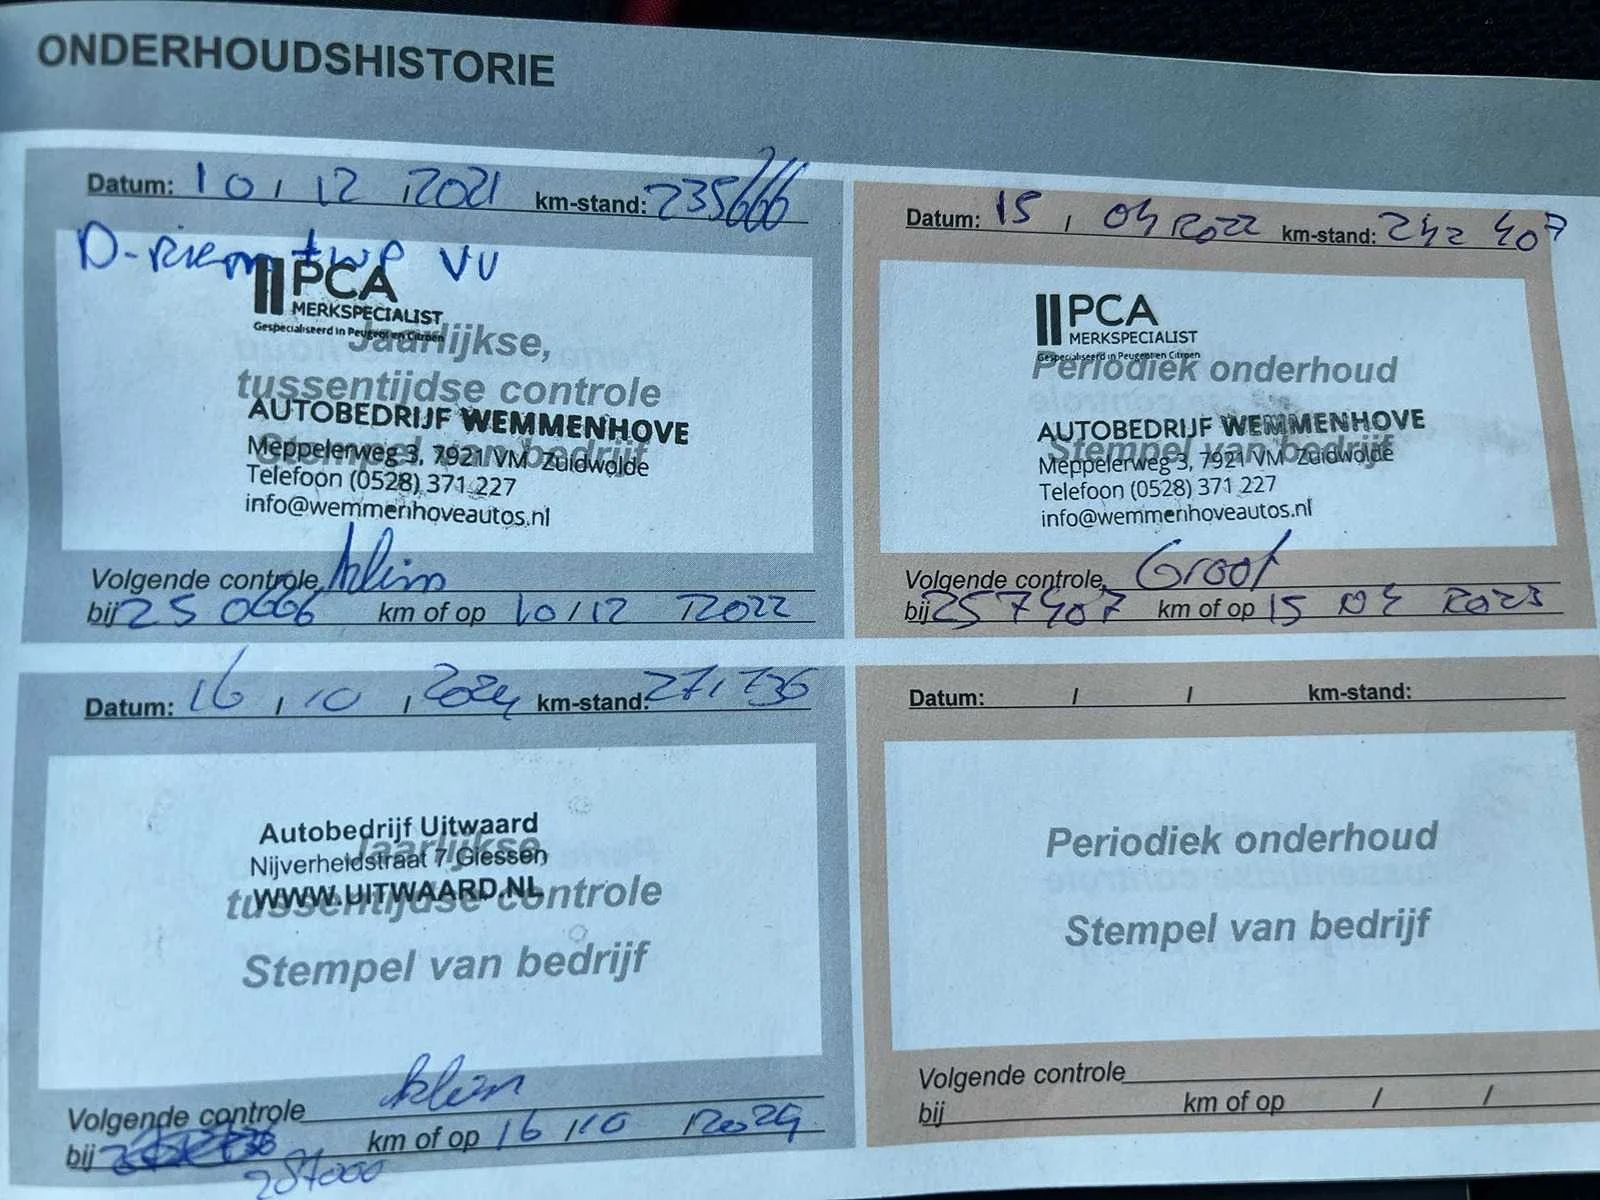 ONDERHOUDSHISTORIE
Datum: 10 / 12 / 2021 km-stand: 235666
D-riem + wp vv
PCA
MERKSPECIALIST
Gespecialiseerd in Peugeot en Citroën
Jaarlijkse,
tussentijdse controle
AUTOBEDRIJF WEMMENHOVE
Stempel van bedrijf
Meppelerweg 3, 7921 VM Zuidwolde
Telefoon (0528) 371 227
info@wemmenhoveautos.nl
Volgende controle klein
bij 250666 km of op 10/12 2022
Datum: 15 / 04 2022 km-stand: 242 407
PCA
MERKSPECIALIST
Gespecialiseerd in Peugeot en Citroen
Periodiek onderhoud
AUTOBEDRIJF WEMMENHOVE
Stempel van bedrijf
Meppelerweg 3, 7921 VM Zuidwolde
Telefoon (0528) 371 227
info@wemmenhoveautos.nl
Volgende controle Groot
bij 257407 km of op 15 04 2023
Datum: 16 / 10 / km-stand:
Autobedrijf Uitwaard
Jaarlijkse
Nijverheidstraat 7 Giessen
WWW.UITWAARD.NL
tussentijdse controle
Stempel van bedrijf
Volgende controle klein
bij km of op 16 / 10
287000
Datum: / / km-stand:
Periodiek onderhoud
Stempel van bedrijf
Volgende controle
bij km of op / /